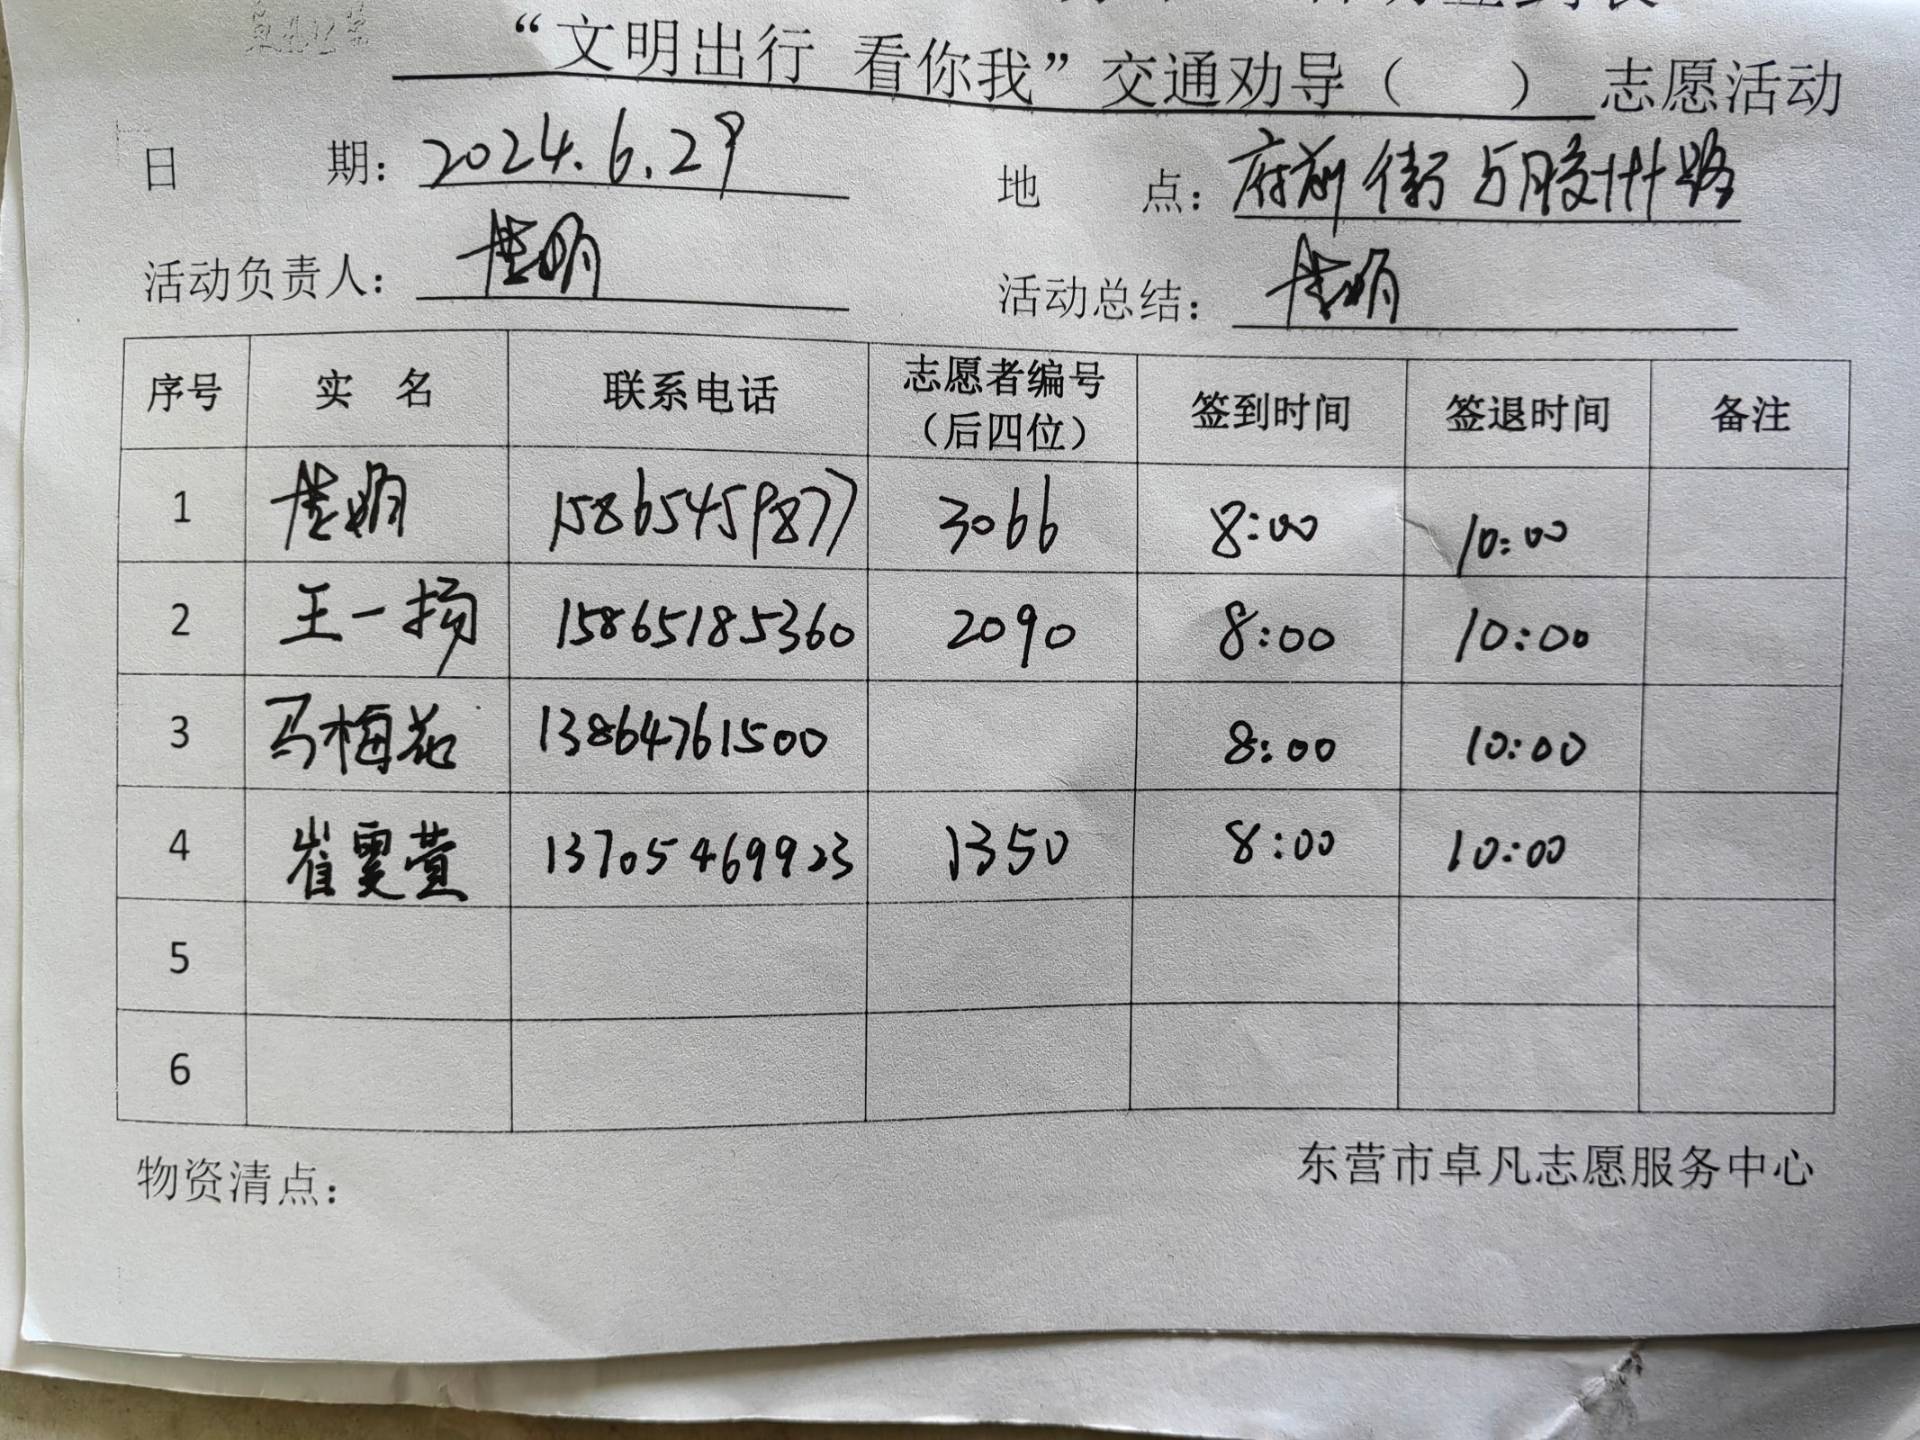 “文明出行 看你我”交通劝导（ ） 志愿活动
日 期： 2024.6.29 地 点： 府前街与胶州路
活动负责人： 活动总结：
序号 实 名 联系电话 志愿者编号（后四位） 签到时间 签退时间 备注
1 15865459877 3066 8:00 10:00
2 王一扬 15865185360 2090 8:00 10:00
3 马梅花 13864761500 8:00 10:00
4 崔雯萱 13705469923 1350 8:00 10:00
5
6
物资清点： 东营市卓凡志愿服务中心